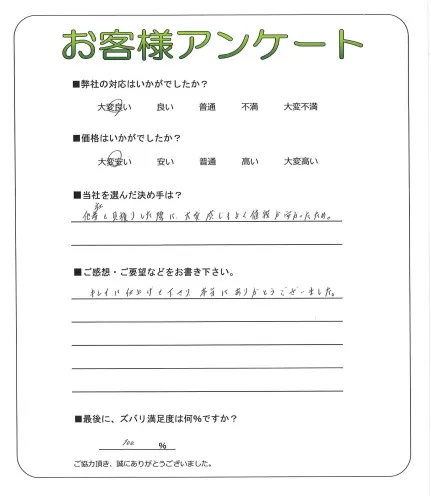 お客様アンケート
■弊社の対応はいかがでしたか？
大変良い 良い 普通 不満 大変不満
■価格はいかがでしたか？
大変安い 安い 普通 高い 大変高い
■当社を選んだ決め手は？
他社と見積りした際に、大変感じもよく値段が安かったため。
■ご感想・ご要望などをお書き下さい。
キレイに仕上げて下さり 本当にありがとうございました。
■最後に、ズバリ満足度は何％ですか？
100 ％
ご協力頂き、誠にありがとうございました。